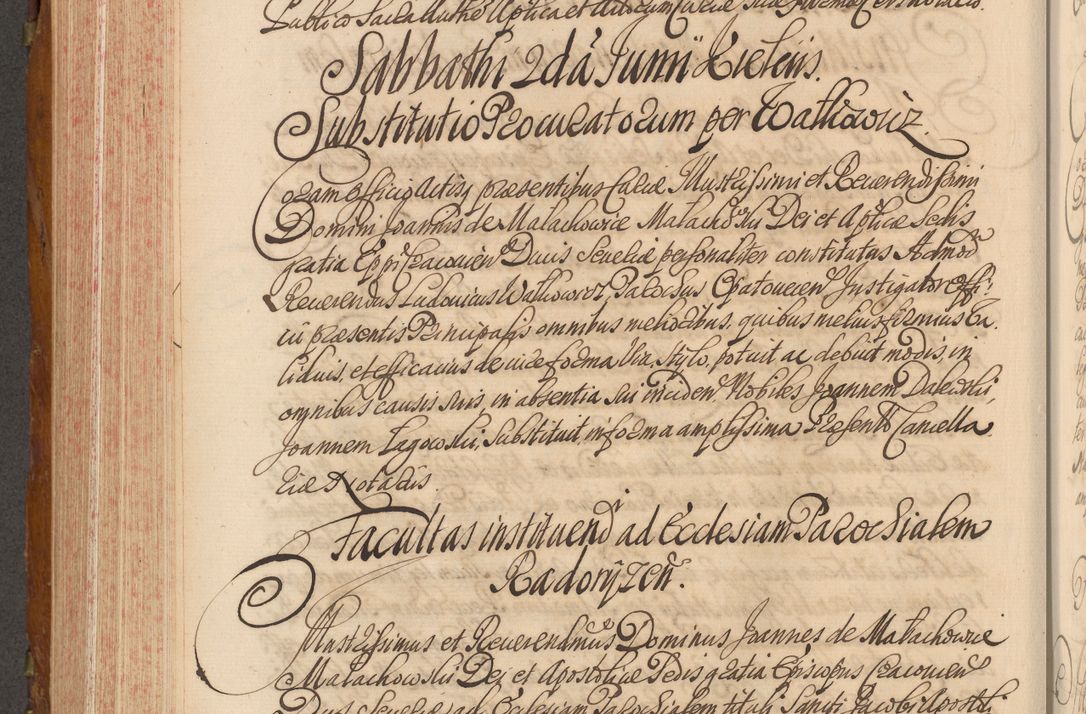 Publico Sacra Autho Aptica et
Sabbathi 2dâ Junii Kielciis.
Substitutio Procuratorum per Walkowicz.
Coram officio Actisq praesentibus Curiae Illustrissimi et Reuerendissimi
Domini Joannis de Malachowice Malachowski Dei et Apticae Sedis
gratia Eppi Cracouien Ducis Seueriae personaliter constitutus Admod
Reuerendus Ludouicus Walkowicz, Parochus Opatouecen Instigator Offi:
cii praesentis Principalis omnibus melioribus, quibus melius firmius va
lidius, et efficacius de iure forma Via, Stylo, potuit ac debuit modis, in
omnibus causis suis in absentia sui inciden Nobiles Joannem Dalewski,
Joannem Łagowski, Substituit in forma amplissima Presentt Cancella
riae Notariis.
Facultas instituendi ad Ecclesiam Parochialem
Radoryzen.
Illustrissimus et Reuerendmus Dominus Joannes de Malachowice
Malachowski Dei et Apostolicae Sedis gratia Episcopus Cracouien
Dux Seueriae ad Ecclesiam Parochialem tituli Sancti Jacobi Apostoli